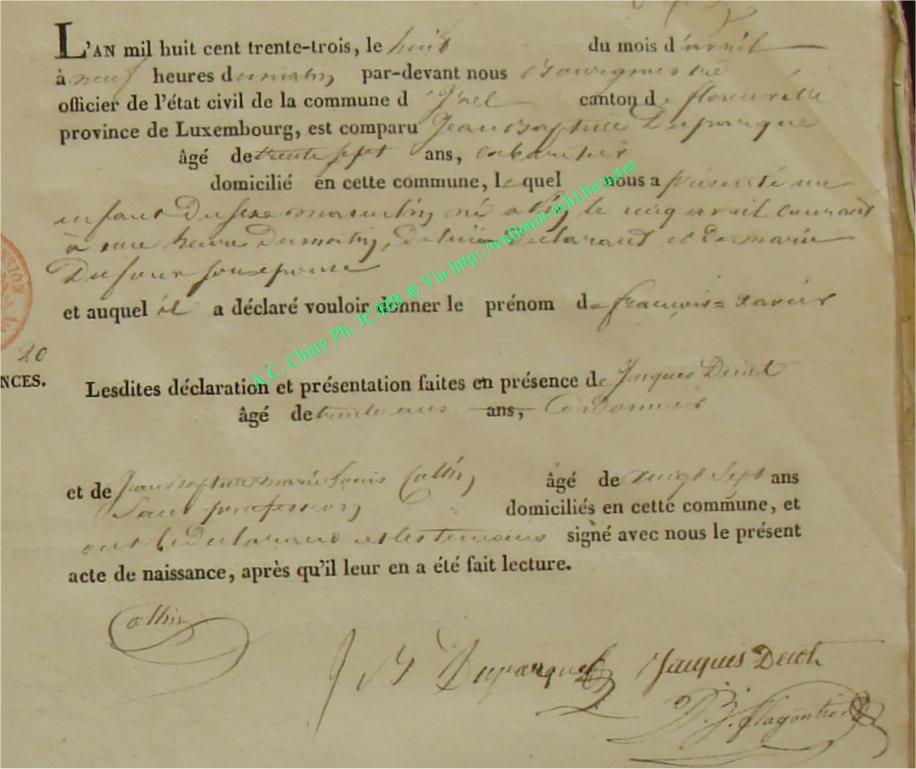 L'AN mil huit cent trente-trois, le huit du mois d'avril
à neuf heures du matin, par-devant nous Bourgmestre
officier de l'état civil de la commune d'Izel canton de florenville
province de Luxembourg, est comparu Jean Baptiste Duparque
âgé de trente sept ans, cabaretier
domicilié en cette commune, lequel nous a présenté un
enfant du sexe masculin, né à Izel, le cinq avril courant
à une heure du matin, De lui Déclarant et De marie
Dufour son epouse
et auquel il a déclaré vouloir donner le prénom de françois=xavier
20
NCES.
Lesdites déclaration et présentation faites en présence de Jacques Decot
âgé de trente ans ans, Cordonnier
et de Jean Baptiste marie Louis Collin, âgé de vingt sept ans
Sans profession, domiciliés en cette commune, et
ont le Déclarant et les temoins signé avec nous le présent
acte de naissance, après qu'il leur en a été fait lecture.
Collin
J B Duparque Jacques Decot
A.C. Chiny Ph. JC HBI ® Via http://wallonia-asbl.be/actes